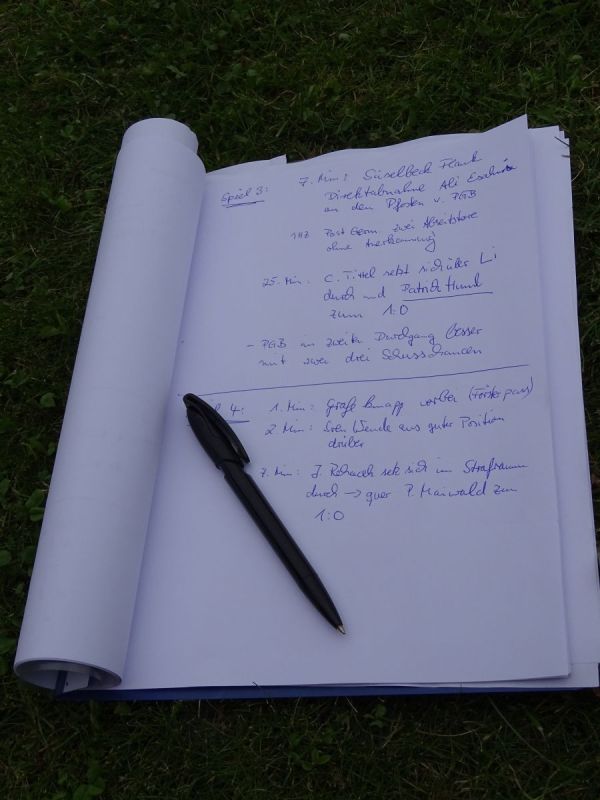 Spiel 3: 7. Min: Süselbeck Flank
Direktabnahme Ali
an den Pfosten v. PGB
1HZ Post Germ. zwei Abseitstore
ohne Anerkennung
25. Min: C. Tittel setzt sich über Li
durch und Patrick Hund
zum 1:0
- PGB im zweiten Durchgang besser
mit zwei drei Schusschancen
4: 1. Min: Große knapp vorbei (Förster pass)
2. Min: Sven Wende aus guter Position
drüber
7. Min: J. setzt sich im Strafraum
durch → quer P. Maiwald zum
1:0